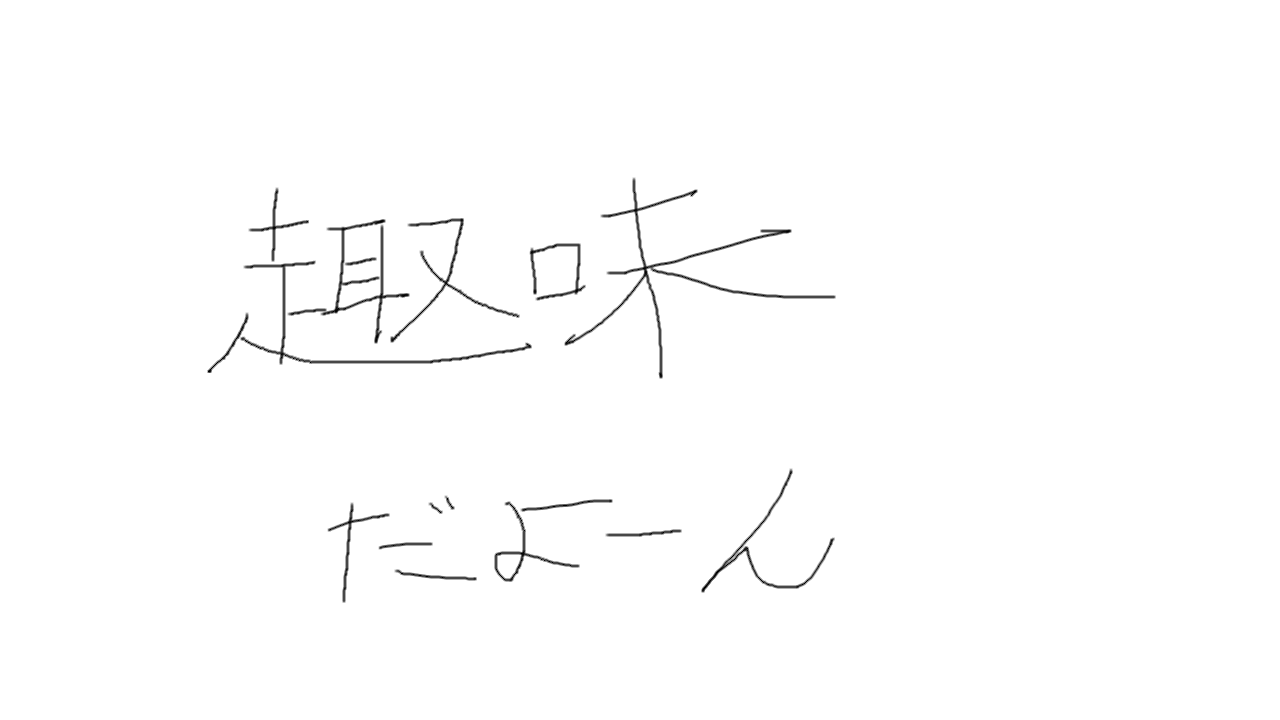 趣味
だよーん